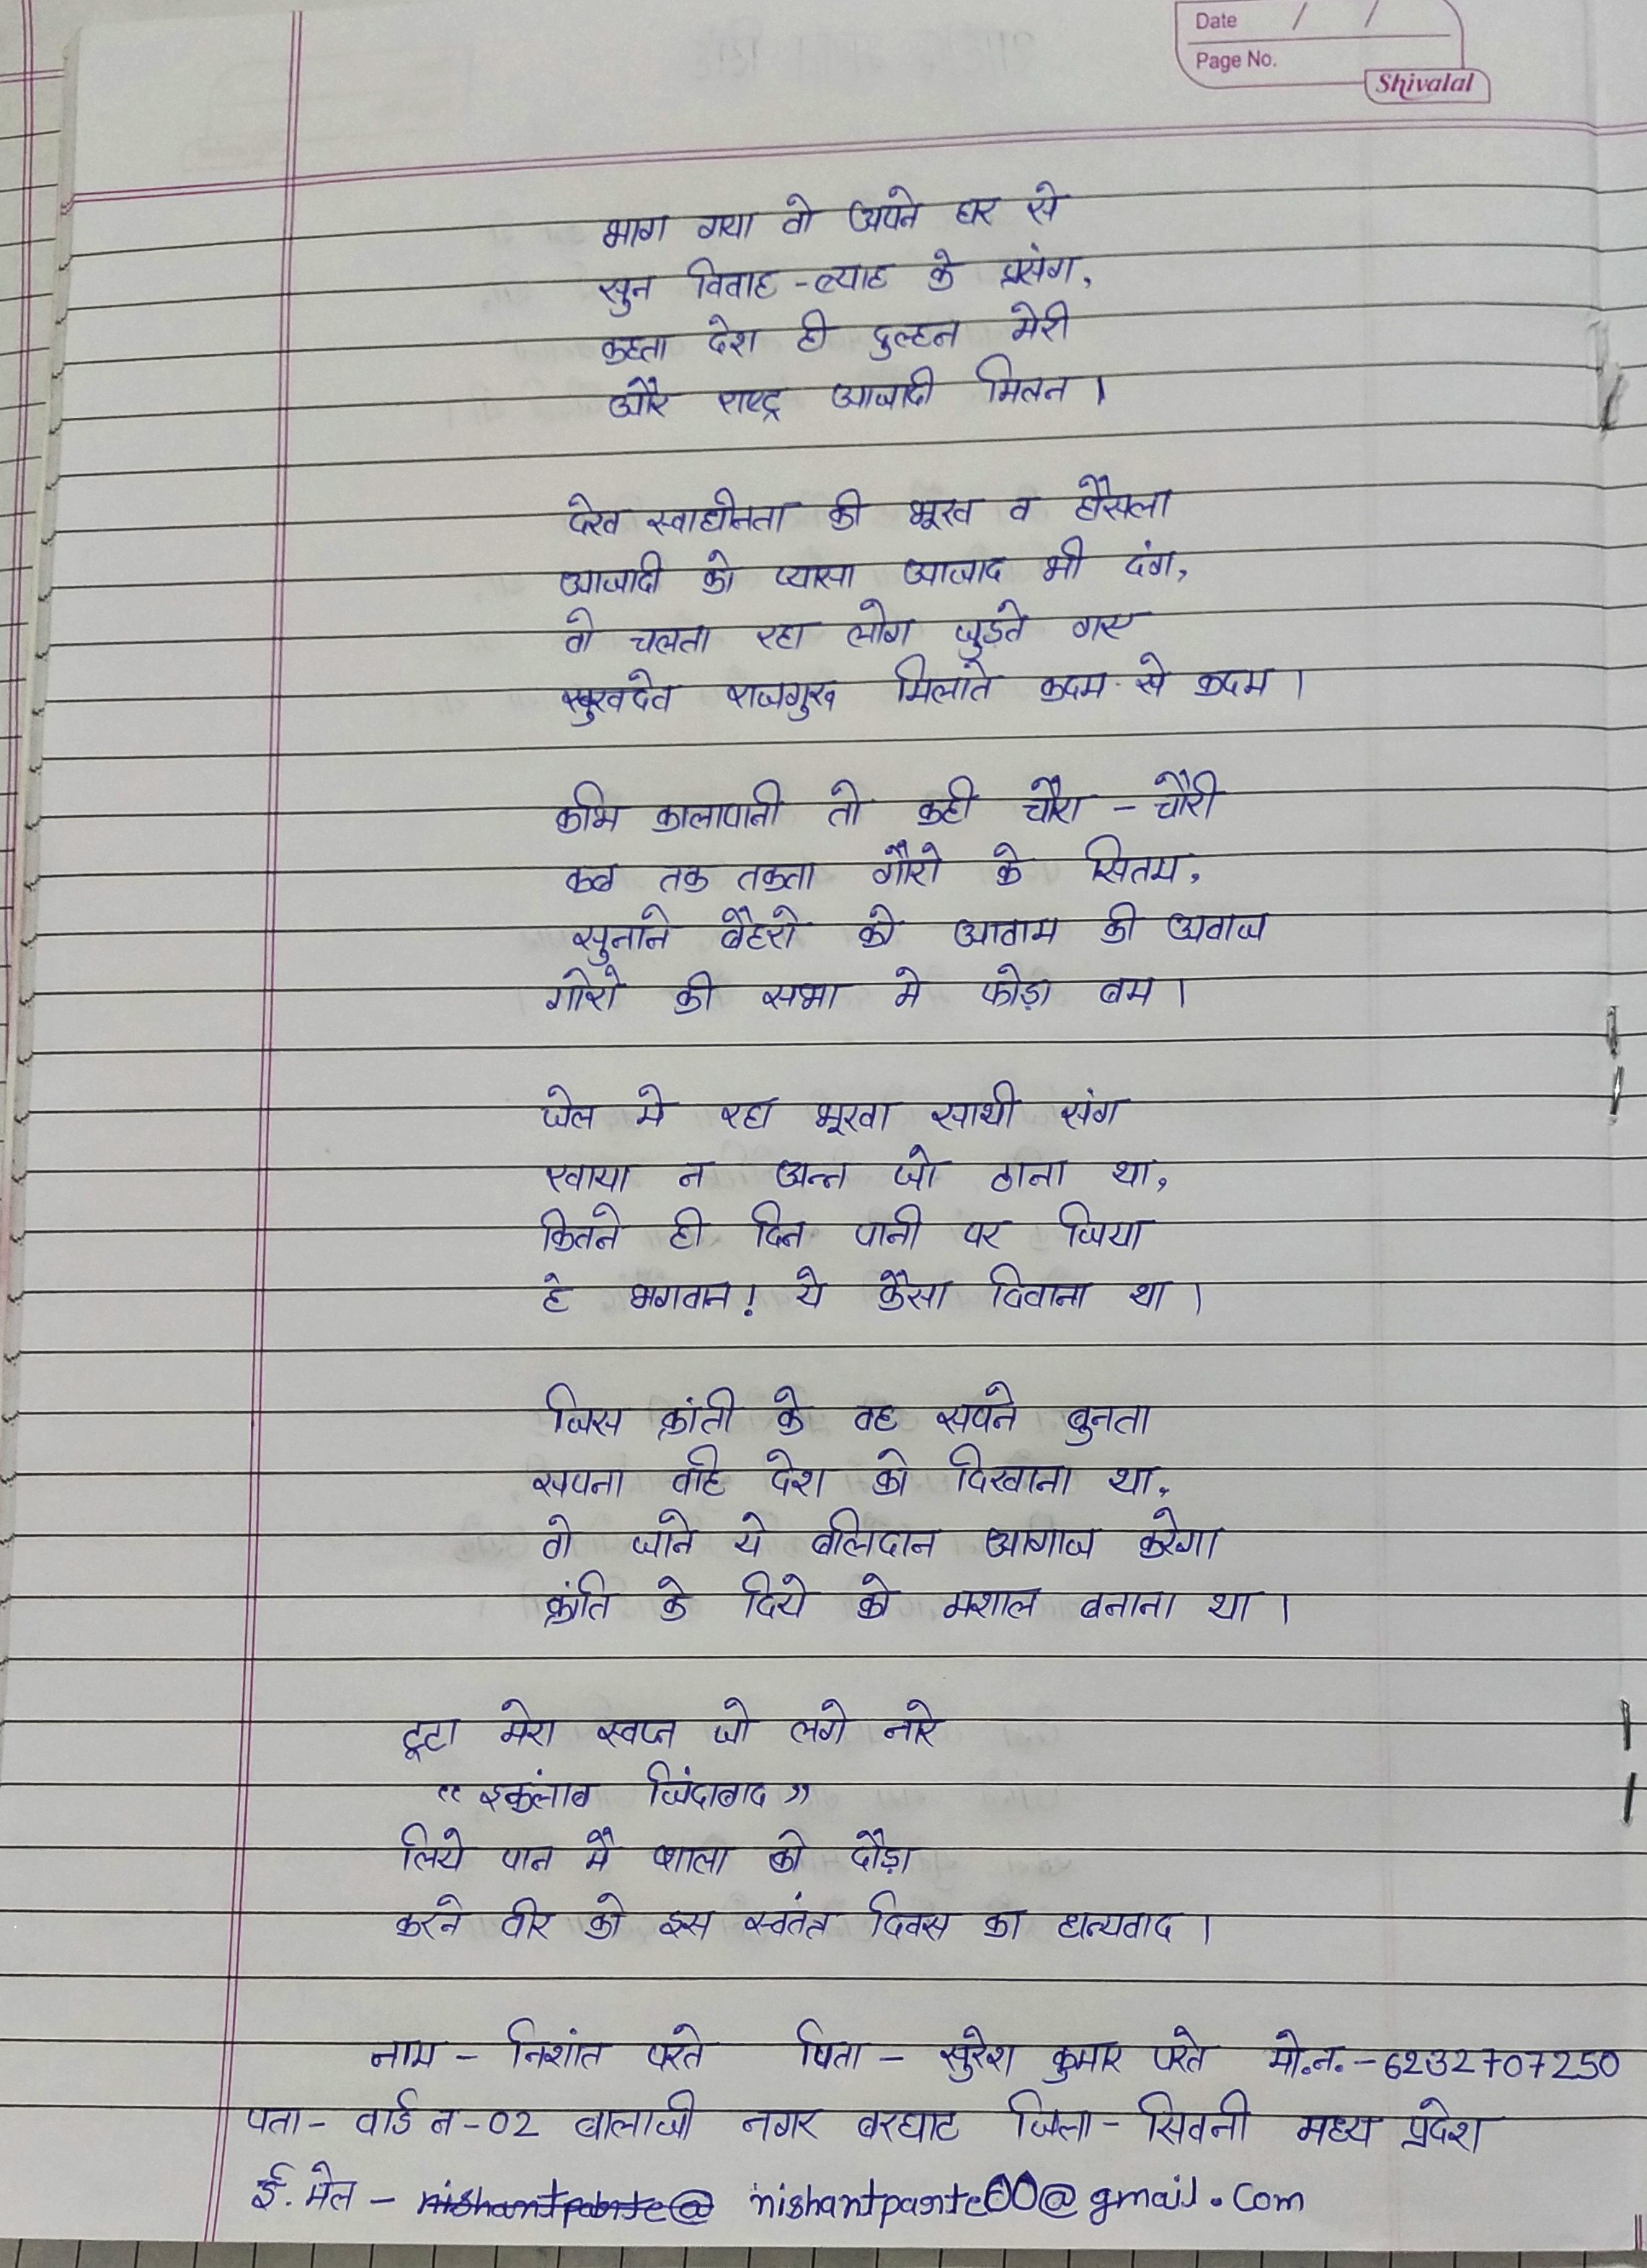 Date / /
Page No.
Shivalal
भाग गया वो अपने घर से
सुन विवाह - ब्याह के प्रसंग,
कहता देश ही दुल्हन मेरी
और राष्ट्र आजादी मिलन ।
देख स्वाधीनता की भूख व हौसला
आजादी को प्यासा आजाद भी दंग,
वो चलता रहा लोग जुड़ते गए
सुखदेव राजगुरु मिलाते कदम से कदम ।
कभि कालापानी तो कही चौरा - चौरी
कब तक तकता गौरो के सितम,
सुनाने बैहरो को आवाम की अवाज
गोरो की सभा मे फोड़ा बम ।
जेल मे रहा भूखा साथी संग
खाया न अन्न जो ठाना था,
कितने ही दिन पानी पर जिया
हे भगवान! ये कैसा दिवाना था ।
जिस क्रांती के वह सपने बुनता
सपना वहि देश को दिखाना था,
वो जाने ये बलिदान आगाज करेगा
क्रांति के दिये को मशाल बनाना था ।
टूटा मेरा स्वप्न जो लगे नारे
“ इकंलाब जिंदाबाद ”
लिये पान मै शाला को दौड़ा
करने वीर को इस स्वतंत्र दिवस का धन्यवाद ।
नाम - निशांत परते पिता - सुरेश कुमार परते मो.न. - 6232707250
पता - वार्ड न - 02 बालाजी नगर बरघाट जिला - सिवनी मध्य प्रदेश
ई. मेल - nishantparte@ nishantparte00@gmail.com